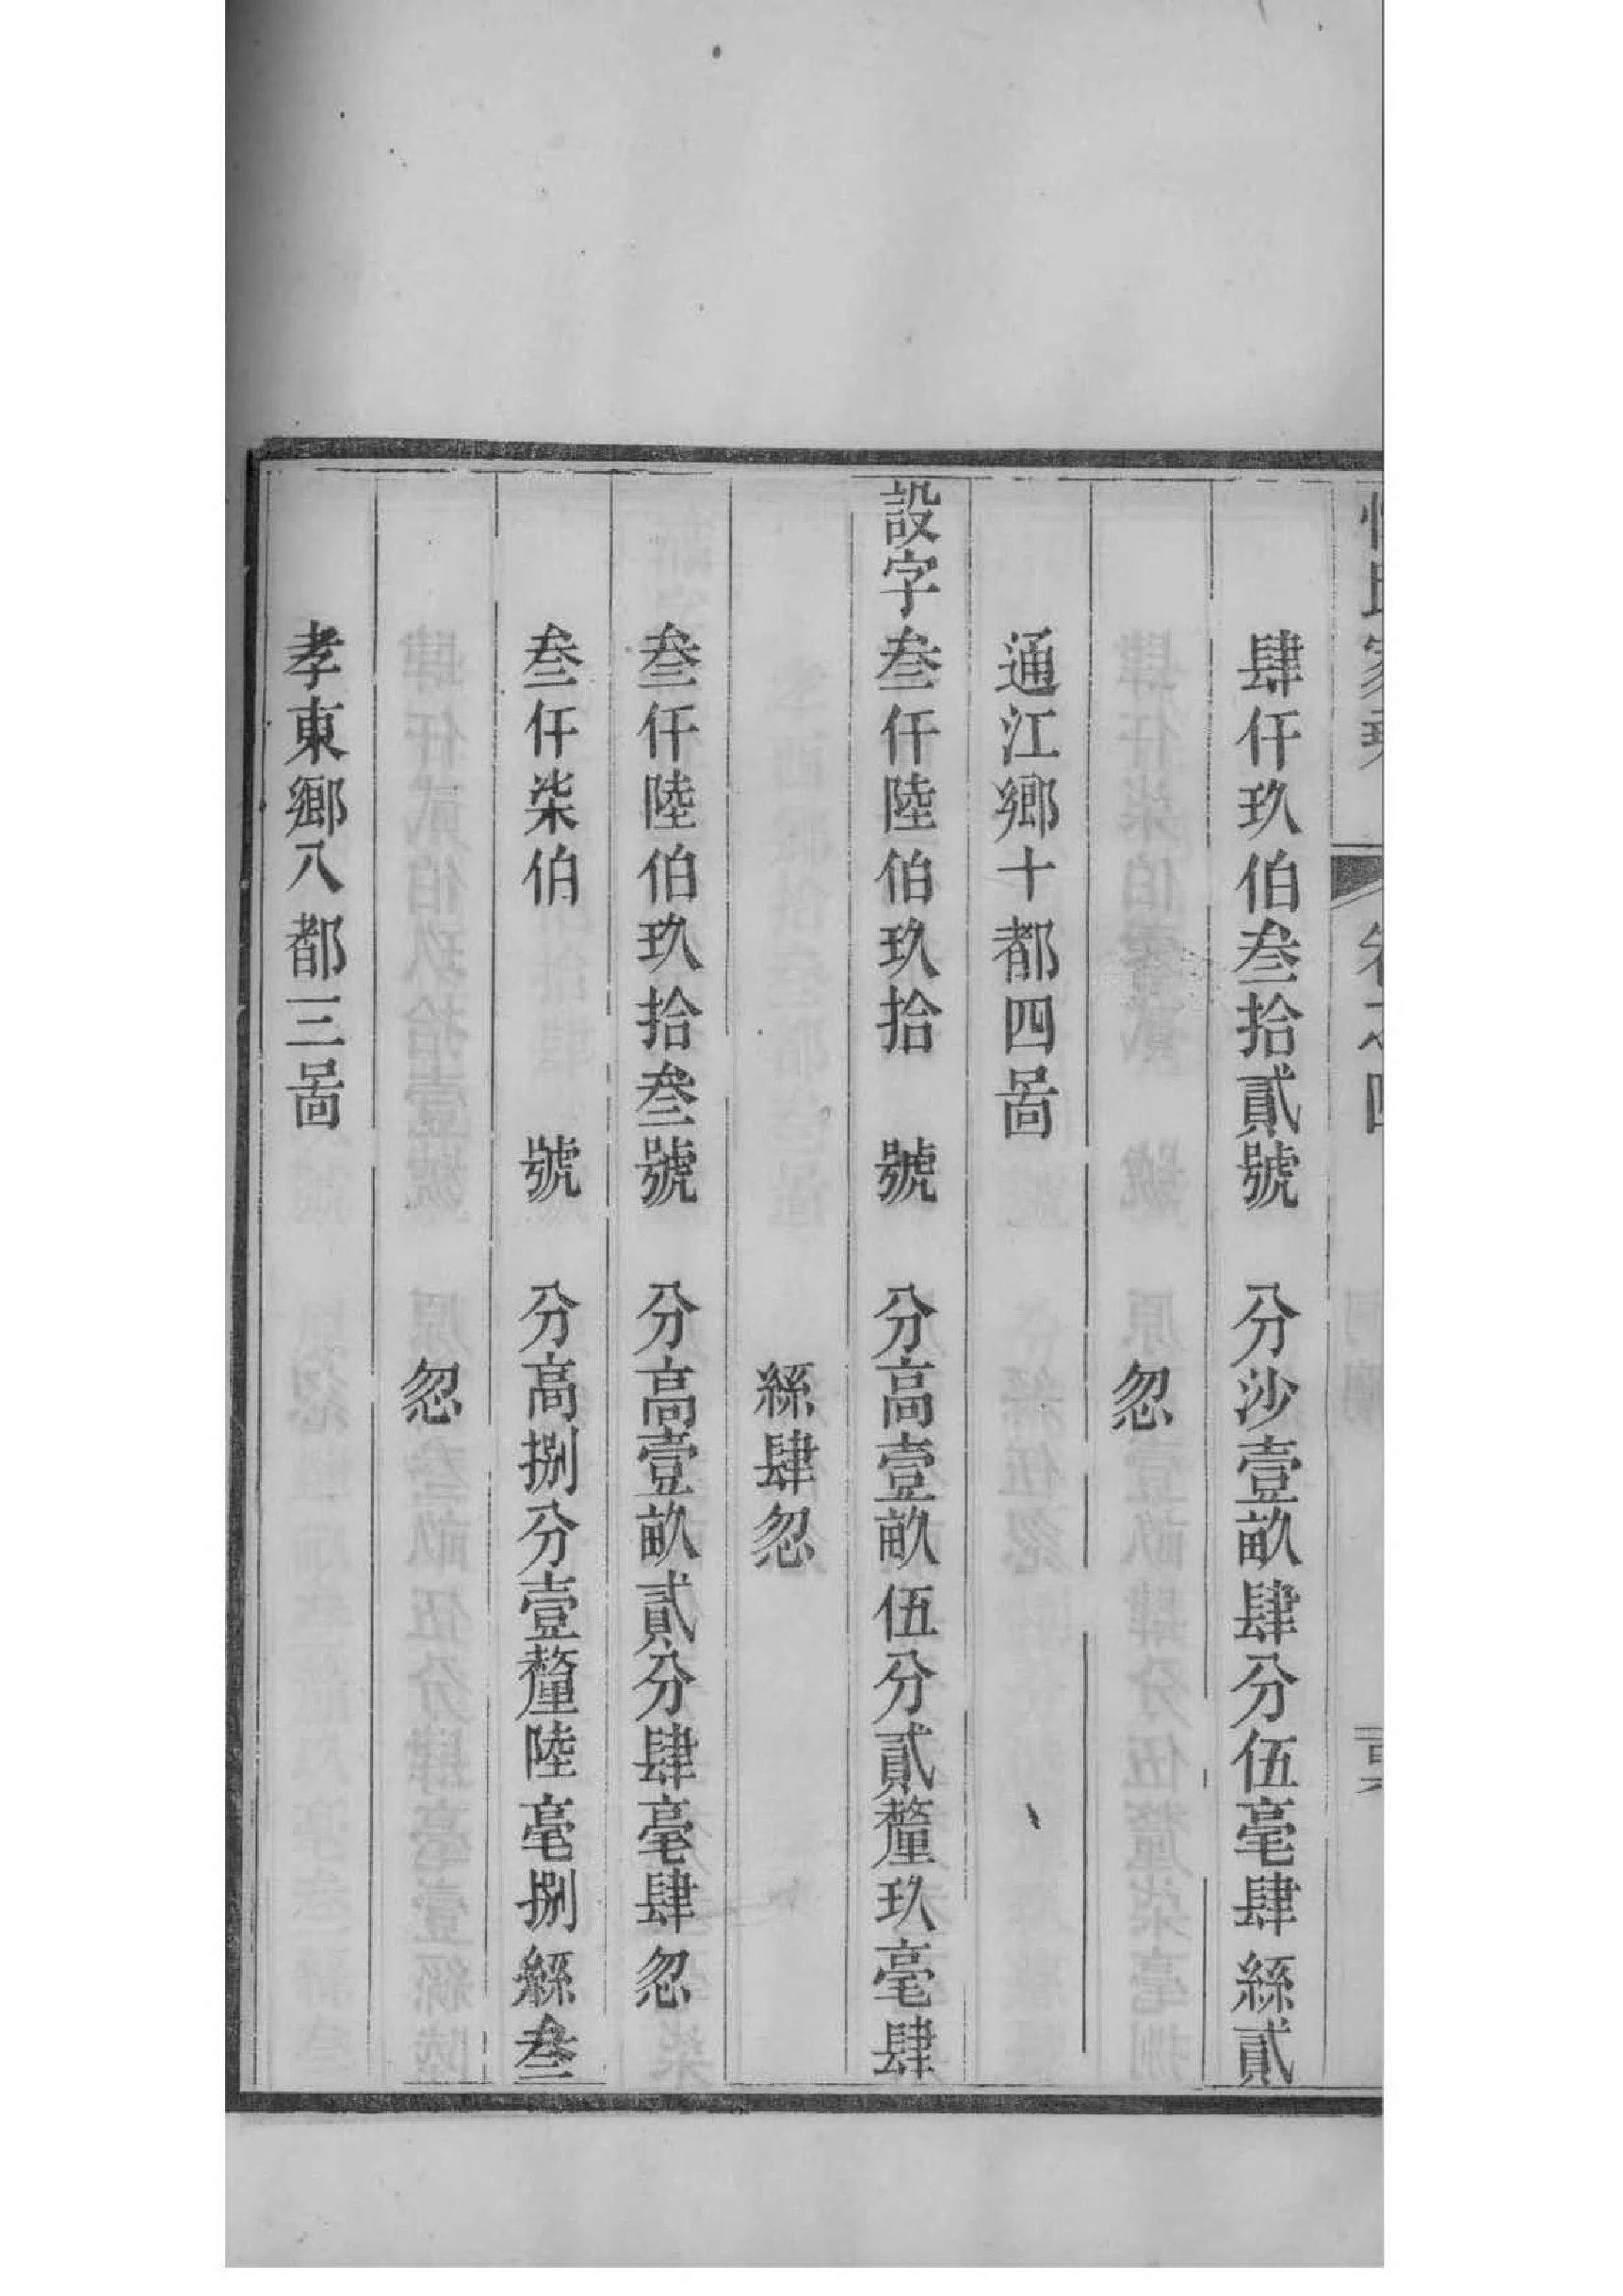 卷之四
肆仟玖伯叁拾貳號 分沙壹畝肆分伍毫肆絲貳
忽
通江鄉十都四啚
設字叁仟陸伯玖拾 號 分高壹畝伍分貳釐玖毫肆
絲肆忽
叁仟陸伯玖拾叁號 分高壹畝貳分肆毫肆忽
叁仟柒伯 號 分高捌分壹釐陸毫捌絲叁
忽
孝東鄉八都三啚